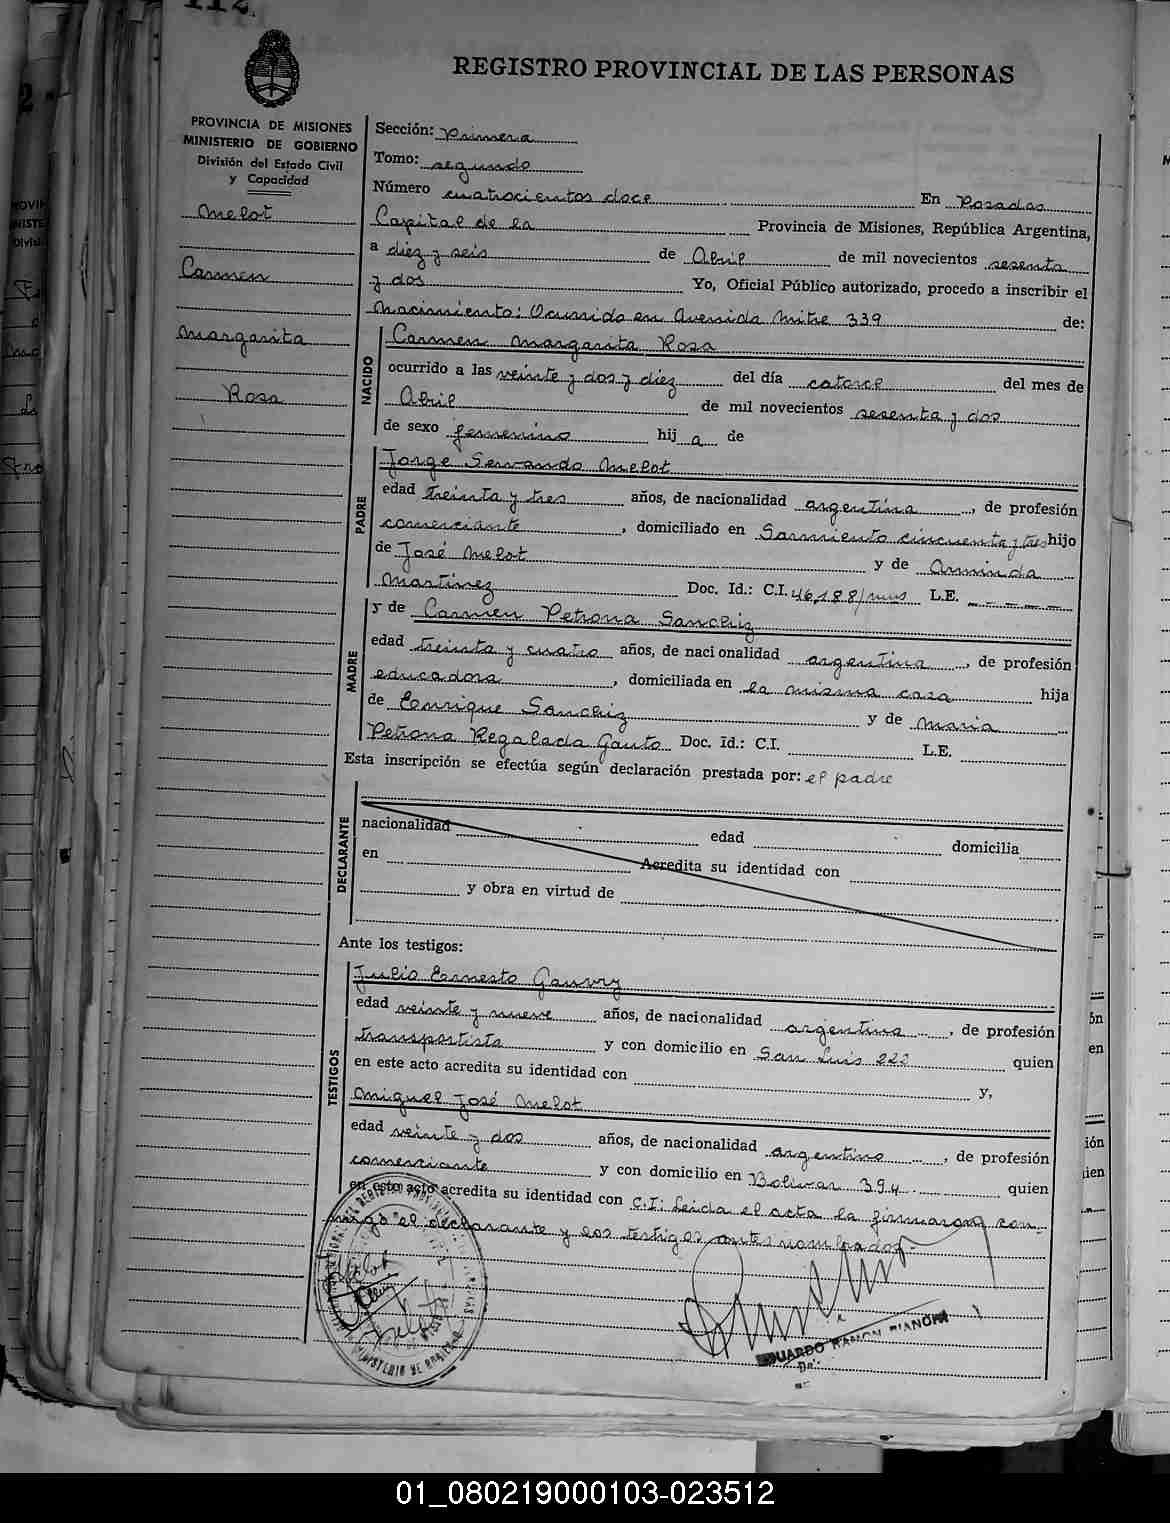 112.
REGISTRO PROVINCIAL DE LAS PERSONAS
PROVINCIA DE MISIONES
MINISTERIO DE GOBIERNO
División del Estado Civil
y Capacidad
Melot
Carmen
Margarita
Rosa
Sección: Primera
Tomo: segundo
Número cuatrocientos doce En Posadas
Capital de la Provincia de Misiones, República Argentina,
a diez y seis de Abril de mil novecientos sesenta
y dos Yo, Oficial Público autorizado, procedo a inscribir el
Nacimiento: Ocurrido en Avenida Mitre 339 de:
NACIDO
Carmen Margarita Rosa
ocurrido a las veinte y dos y diez del día catorce del mes de
Abril de mil novecientos sesenta y dos
de sexo femenino hij a de
PADRE
Jorge Servando Melot
edad treinta y tres años, de nacionalidad argentina, de profesión
comerciante, domiciliado en Sarmiento cincuenta y tres hijo
de José Melot y de Arminda
Martinez Doc. Id.: C.I. 46,188/mns L.E. – – – –
MADRE
y de Carmen Petrona Sanchiz
edad treinta y cuatro años, de nacionalidad argentina, de profesión
educadora, domiciliada en la misma casa hija
de Enrique Sanchiz y de Maria
Petrona Regalada Gauto Doc. Id.: C.I. L.E.
Esta inscripción se efectúa según declaración prestada por: el padre
DECLARANTE
nacionalidad edad domicilia
en Acredita su identidad con
y obra en virtud de
Ante los testigos:
TESTIGOS
Julio Ernesto Gauvry
edad veinte y nueve años, de nacionalidad argentina, de profesión
transportista y con domicilio en San Luis 222 quien
en este acto acredita su identidad con y,
Miguel José Melot
edad veinte y dos años, de nacionalidad argentino, de profesión
comerciante y con domicilio en Bolivar 394 quien
en este acto acredita su identidad con C.I: Leida el acta la firmaron con-
migo el declarante y los testigos antes nombrados.-
MINISTERIO DE GOBIERNO
EDUARDO RAMON BIANCHI
01_080219000103-023512